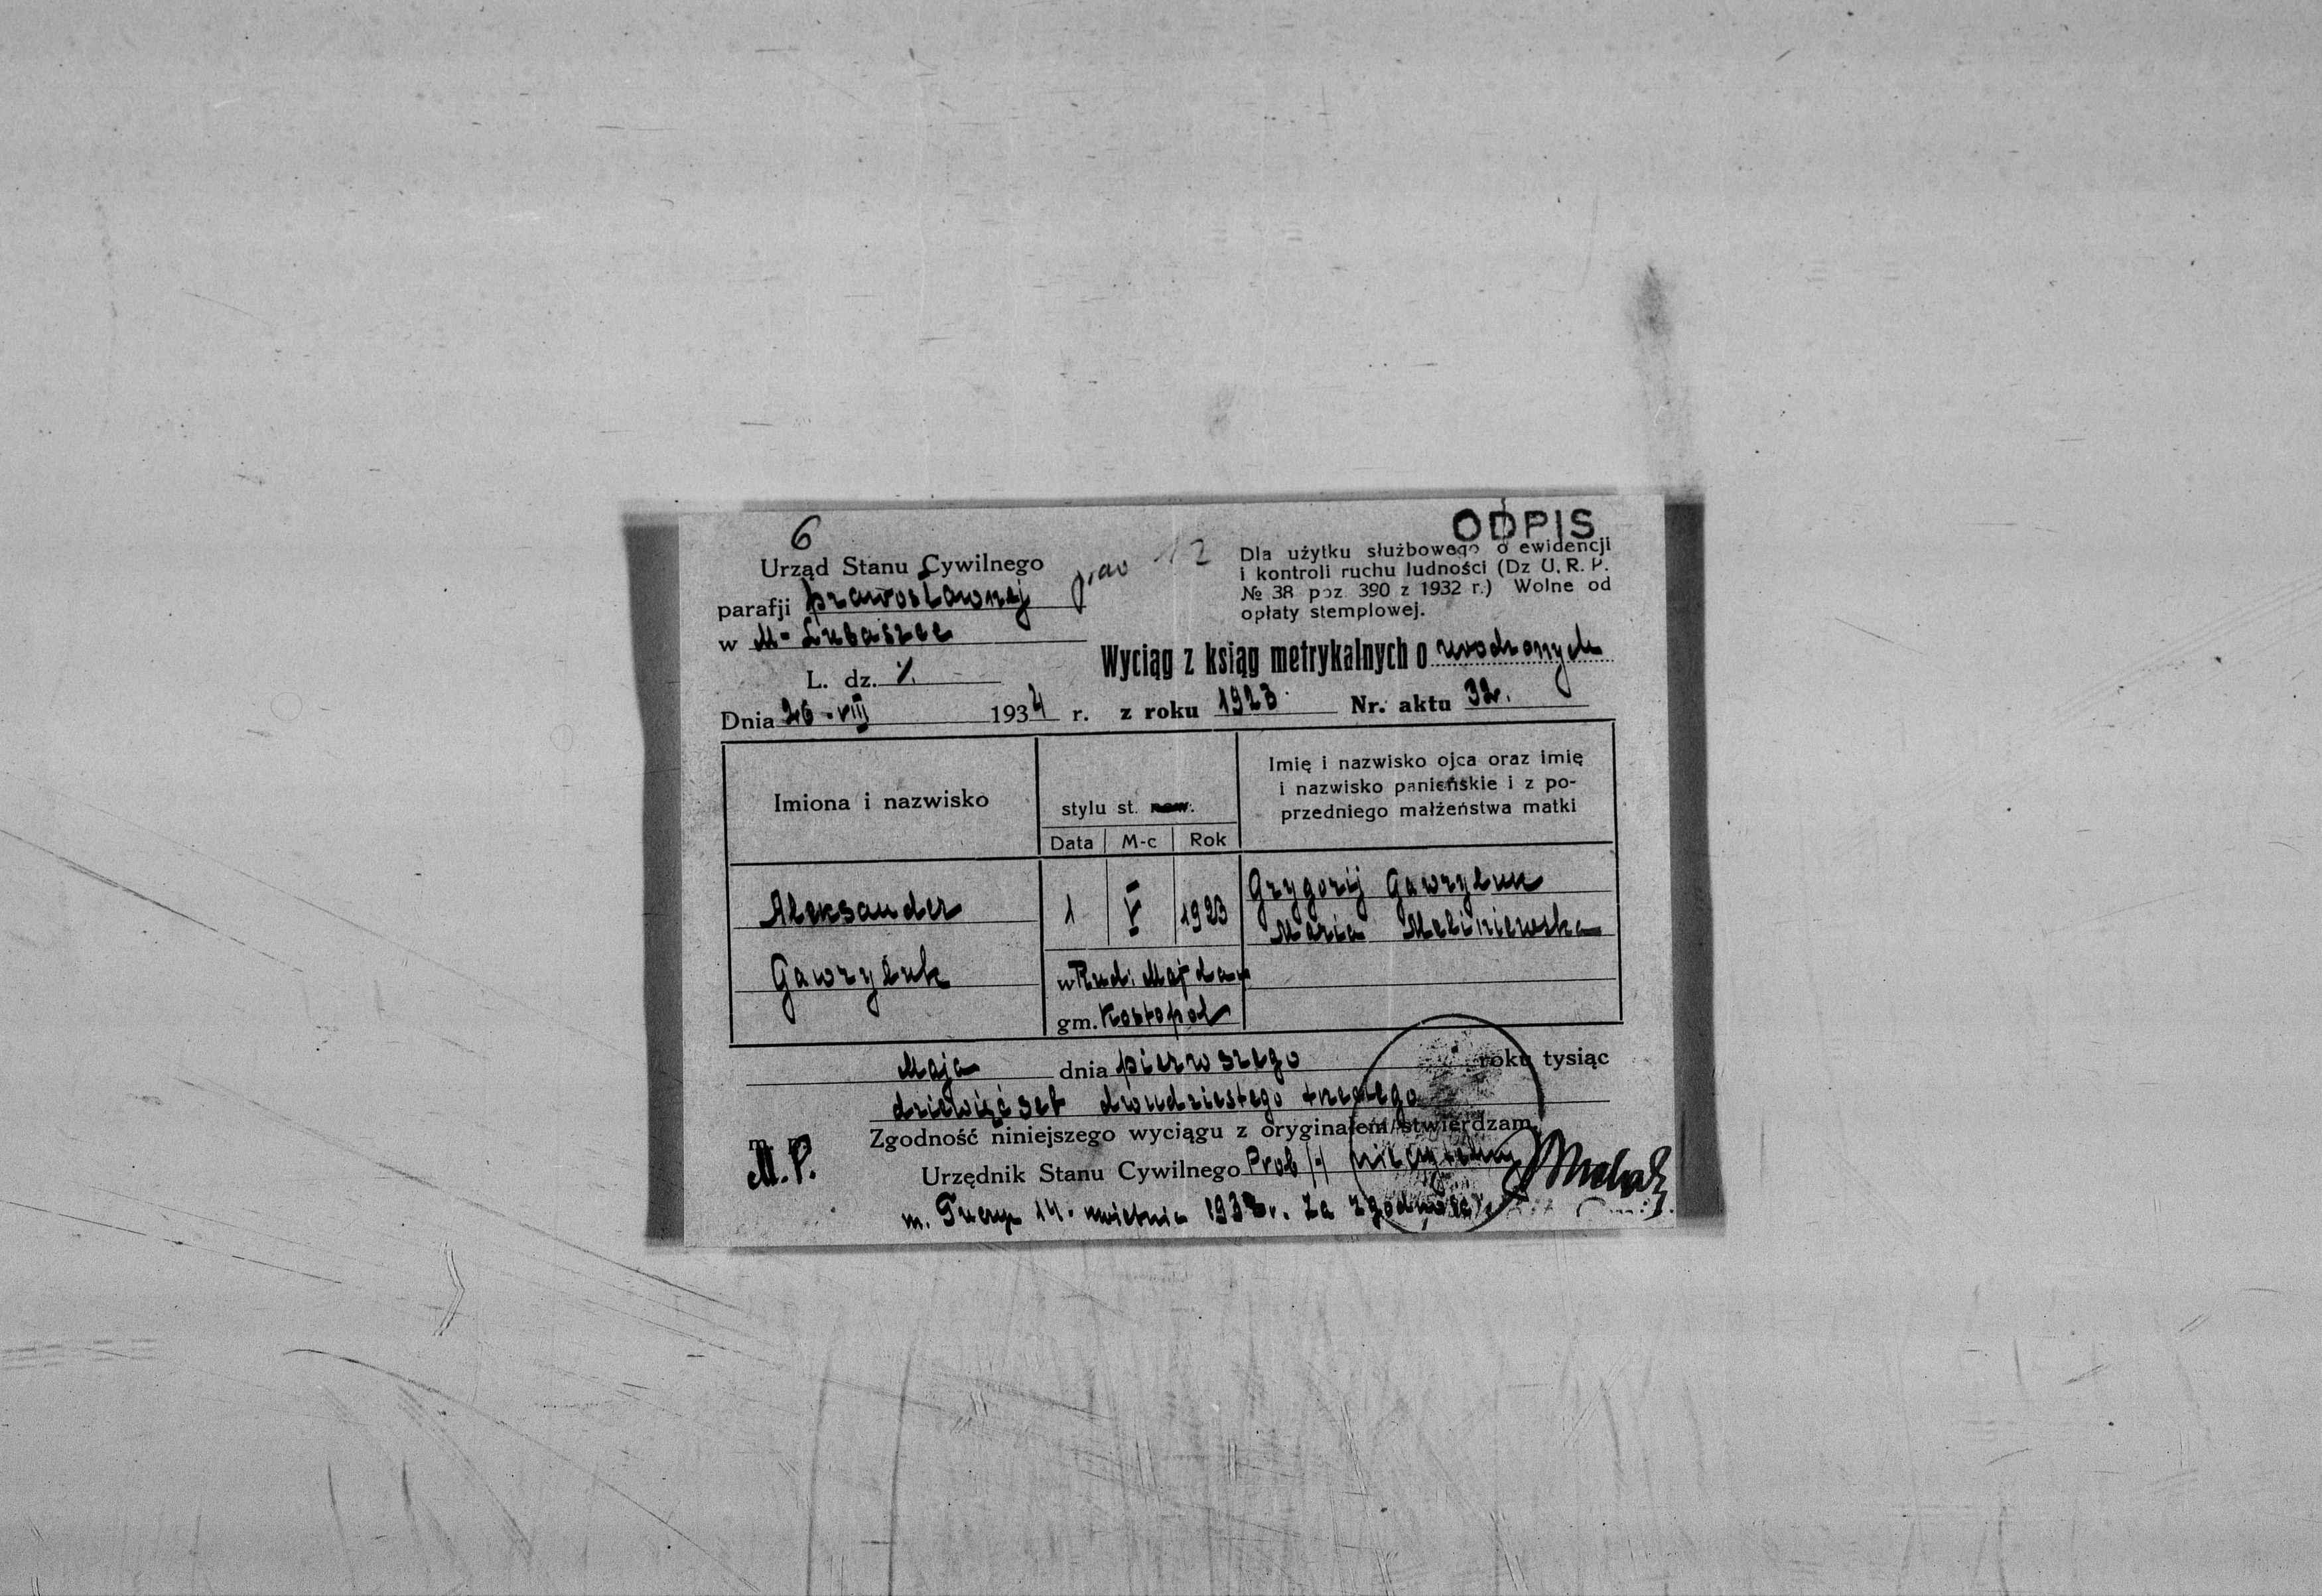 6
ODPIS
Urząd Stanu Cywilnego
parafji prawosławnej
w M-Lubaszce
L. dz. %
Dnia 26-VIII 1934 r.
12
Dla użytku służbowego o ewidencji
i kontroli ruchu ludności (Dz U. R. P.
№ 38 poz. 390 z 1932 r.) Wolne od
opłaty stemplowej.
Wyciąg z ksiąg metrykalnych o urodzonych
z roku 1923 Nr. aktu 32.
Imiona i nazwisko
stylu st. now.
Data M-c Rok
Imię i nazwisko ojca oraz imię
i nazwisko panieńskie i z po-
przedniego małżeństwa matki
Aleksander
Gawryluk
1 V 1923
w Rud. Majdan
gm. Kostopol
Grygorij Gawryluk
Maria Meliniewska
Maja dnia pierwszego roku tysiąc
dziewięćset dwudziestego trzeciego
Zgodność niniejszego wyciągu z oryginałem stwierdzam
M.P.
Urzędnik Stanu Cywilnego Prob /-/ nieczytelny
m. 14. kwietnia 1938 r. Za zgodność: